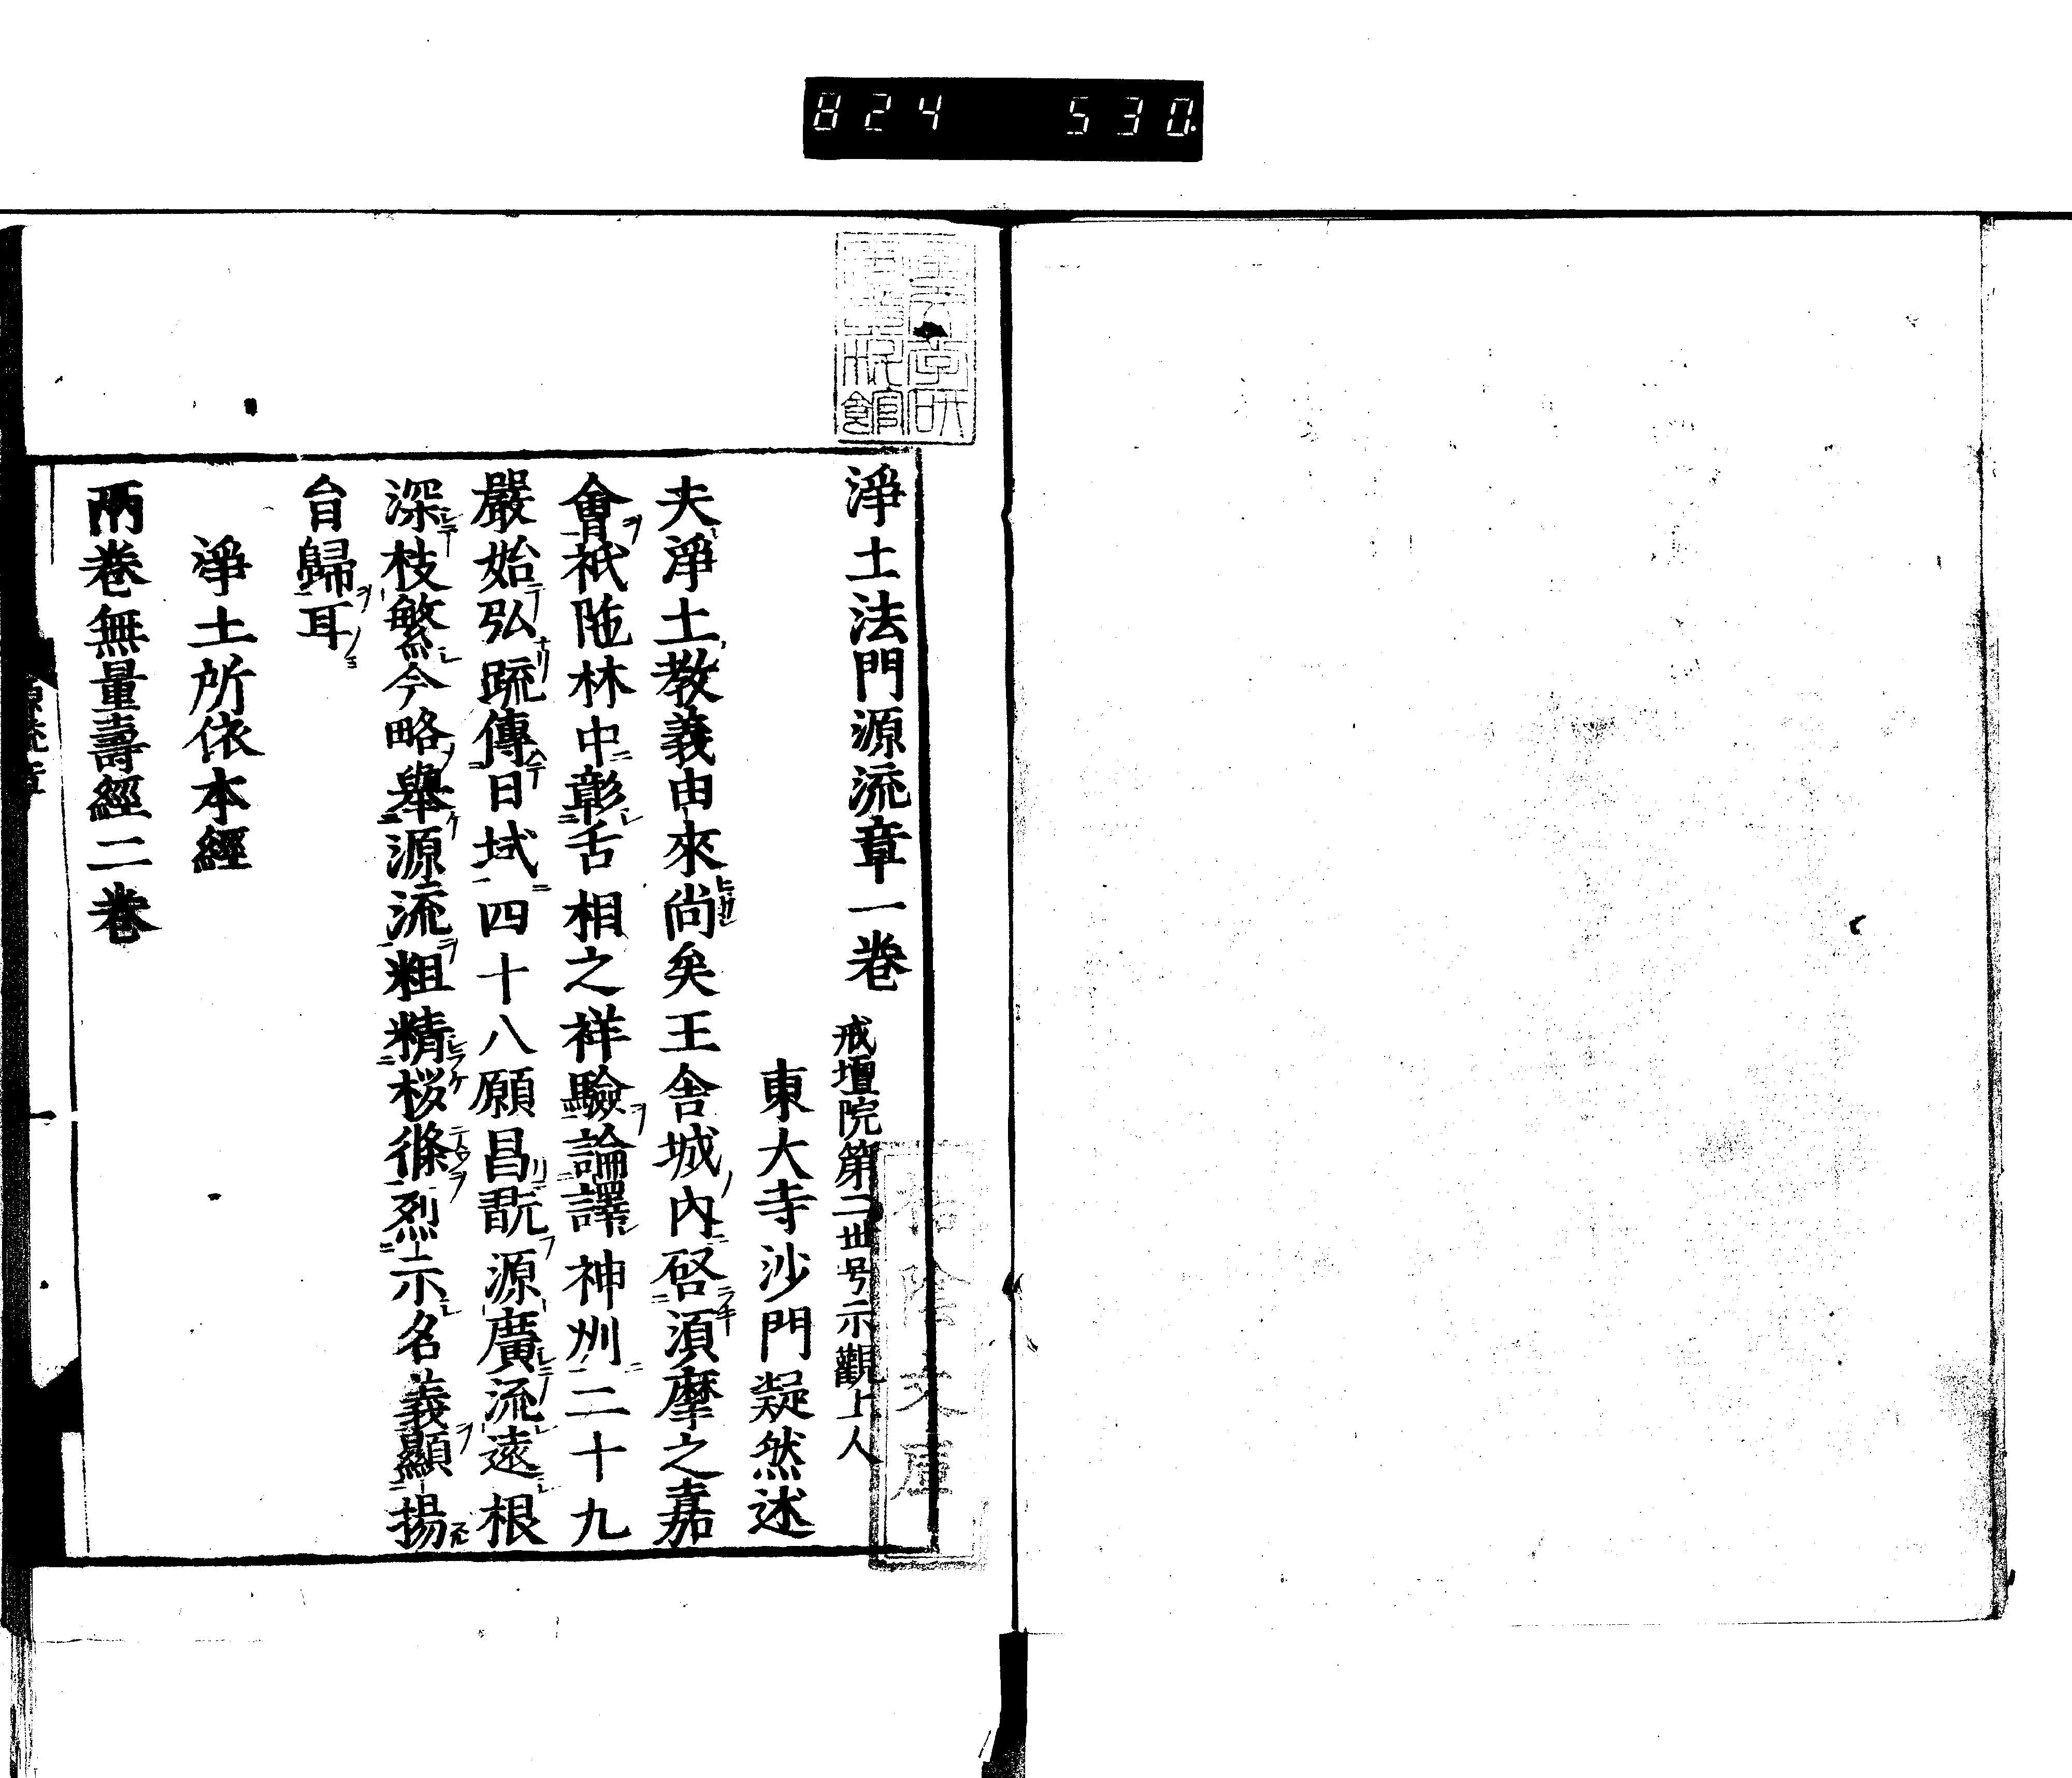 824 530.
淨土法門源流章一卷 戒壇院第二世号示觀上人
東大寺沙門凝然述
夫淨土教義由來尚矣王舍城內啓須摩之嘉
會祇陁林中彰舌相之祥驗論譯神州二十九
嚴始弘疏傳日域四十八願昌翫源廣流遠根
深枝繁今略舉源流粗精桜條烈示名義顯揚
旨歸耳
淨土所依本經
兩卷無量壽經二卷
源流章
一